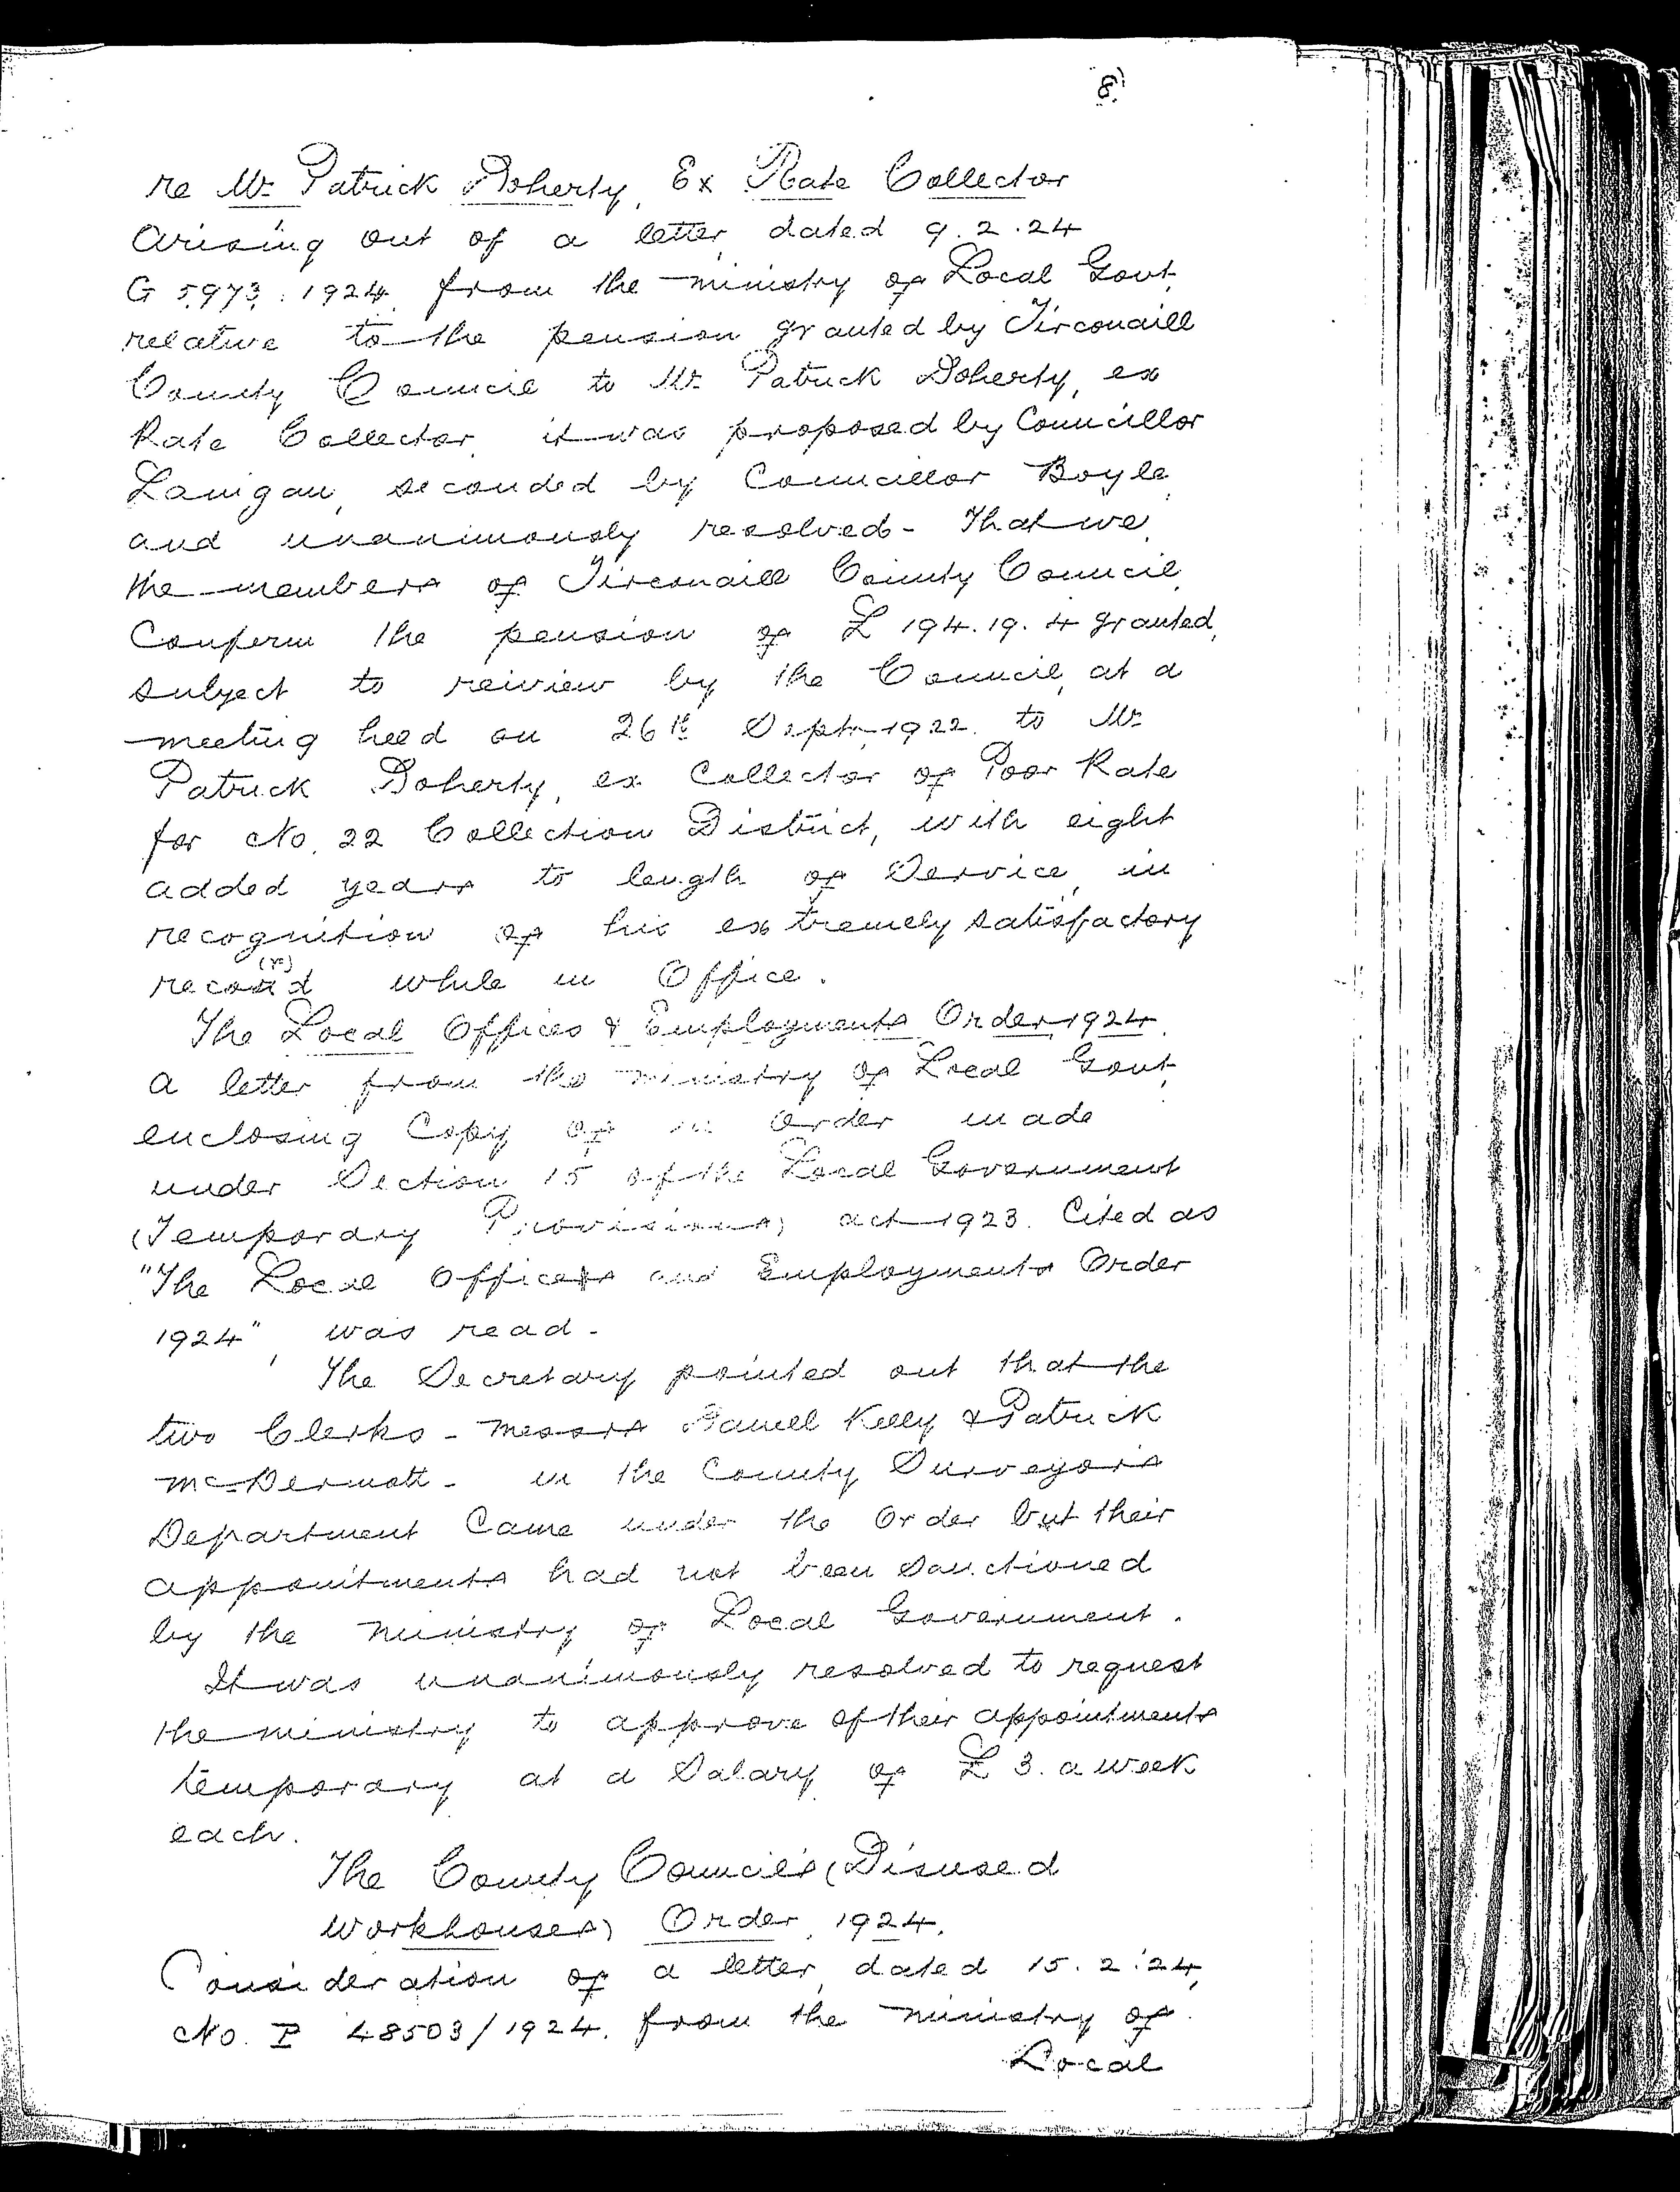 8)
re Mr. Patrick Doherty, Ex Rate Collector
Arising out of a letter, dated 9.2.24
G 5973. 1924 from the ministry of Local Govt,
relative to the pension granted by Tirconaill
County Council to Mr. Patrick Doherty, ex
Rate Collector, it was proposed by Councillor
Lanigan, seconded by Councillor Boyle
and unanimously resolved - That we,
the members of Tirconaill County Council,
Conferm the pension of £ 194.19.4 granted,
subject to reiview by the Council, at a
meeting held on 26th Sept. 1922 to Mr.
Patrick Doherty, ex Collector of Poor Rate
for No. 22 Collection District, with eight
added years to length of Service, in
recognition of his extremely satisfactory
record (r) while in Office.
The Local Offices & Employments Order 1924.
A letter from the ministry of Local Govt,
enclosing Copy of an Order made
under Section 15 of the Local Government
(Temporary Provisions) act 1923. Cited as
"The Local Offices and Employments Order
1924", was read.
The Secretary pointed out that the
two Clerks - Messrs Daniell Kelly & Patrick
McDermott - in the County Surveyors
Department Came under the Order but their
appointments had not been Sanctioned
by the ministry of Local Government.
It was unanimously resolved to request
the ministry to approve of their appointments
temporary at a Salary of £ 3. a week
each.
The County Councils (Disused
Workhouses) Order, 1924.
Consideration of a letter, dated 15.2.24,
No. P 48503/1924. from the ministry of
Local